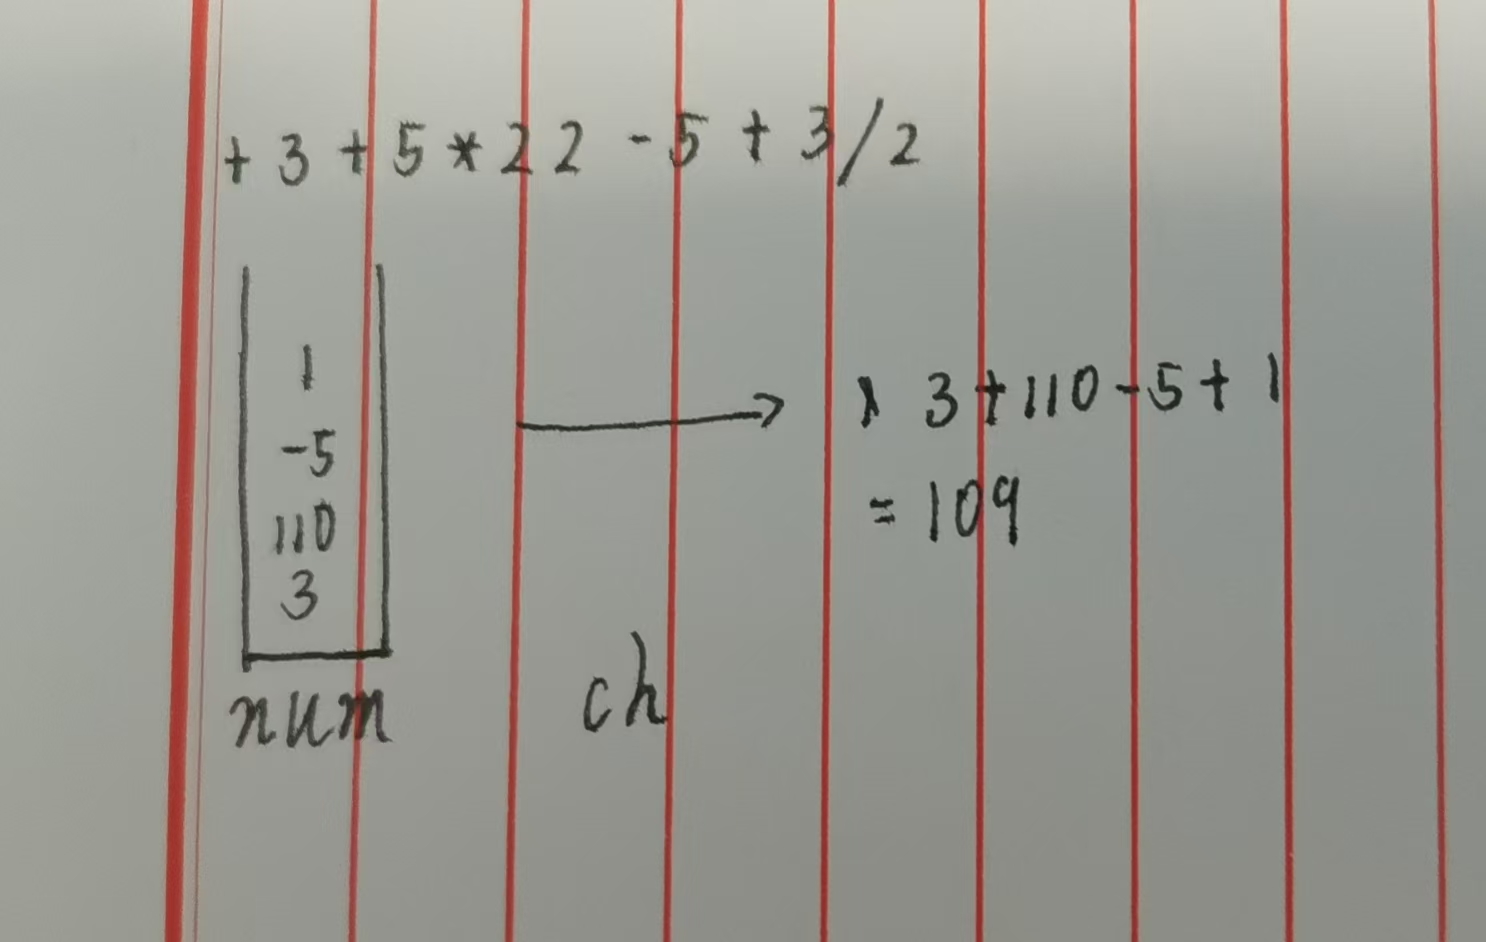 + 3 + 5 * 22 - 5 + 3/2
1
-5
110
3
3 + 110 - 5 + 1
= 109
num
ch